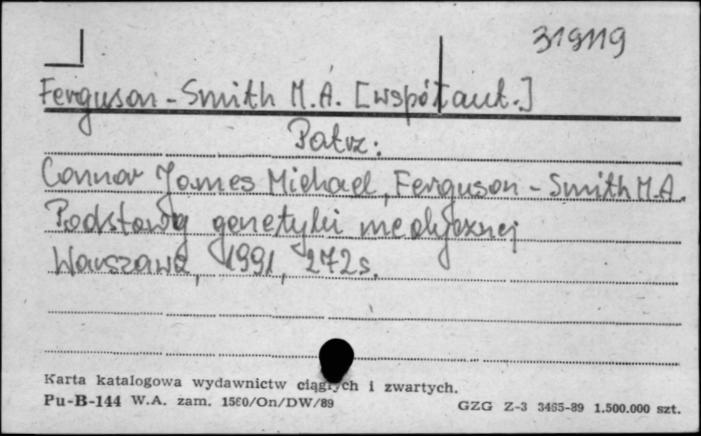 319119
Ferguson-Smith M.A. [współaut.]
Patrz:
Connor James Michael, Ferguson-Smith M.A.
Podstawy genetyki medycznej
Warszawa, 1991, 272s.
Karta katalogowa wydawnictw ciągłych i zwartych.
Pu-B-144 W.A. zam. 1560/On/DW/89 GZG Z-3 3465-89 1.500.000 szt.